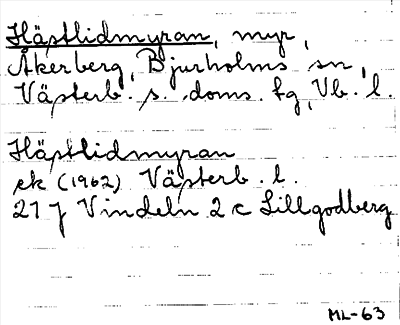 Hästlidmyran, myr,
Åkerberg, Bjurholms sn,
Västerb. s. doms. fg, Vb. l.
Hästlidmyran
ek (1962) Västerb. l.
21 J Vindeln 2 c Lillgodberg
ML-63